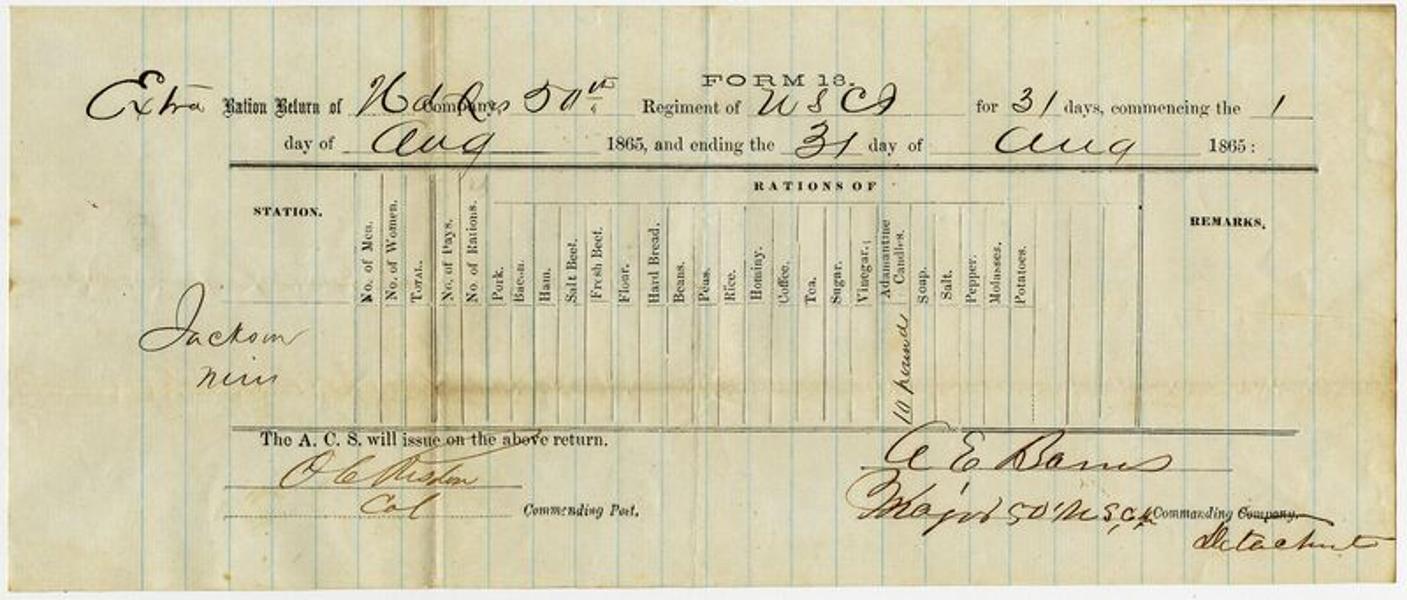 FORM 13.
Extra Ration Return of Hd Qrs Company, 50th Regiment of U S C I for 31 days, commencing the 1
day of Aug 1865, and ending the 31 day of Aug 1865:
RATIONS OF
STATION.
No. of Men.
No. of Women.
TOTAL.
No. of Days.
No. of Rations.
Pork.
Bacon.
Ham.
Salt Beef.
Fresh Beef.
Flour.
Hard Bread.
Beans.
Peas.
Rice.
Hominy.
Coffee.
Tea.
Sugar.
Vinegar.
Adamantine Candles.
Soap.
Salt.
Pepper.
Molasses.
Potatoes.
REMARKS.
Jackson
Miss
10 pounds
The A. C. S. will issue on the above return.
A E Barnes
O C Risdon
Col Commanding Post.
Major 50" U S C I Commanding Company.
Detachment